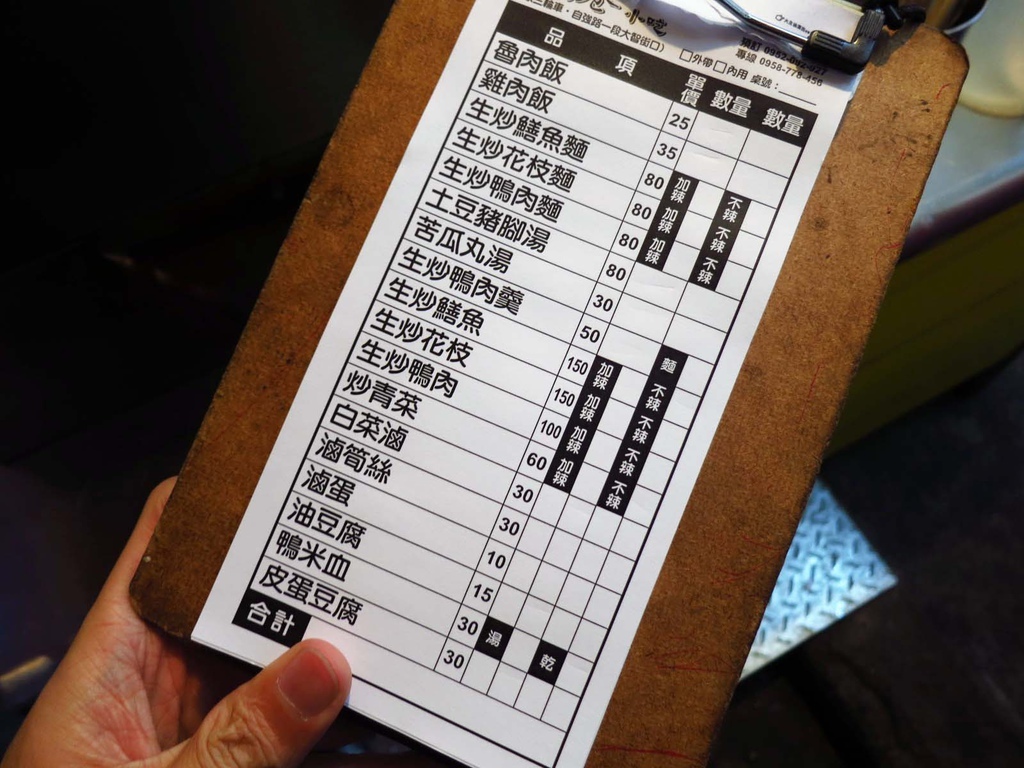 小吃
三輪車・自強路一段大智街口）
預訂
專線 0958-778-456
□外帶 □內用 桌號：
品項 單價 數量 數量
魯肉飯 25
雞肉飯 35
生炒鱔魚麵 80 加辣 不辣
生炒花枝麵 80 加辣 不辣
生炒鴨肉麵 80 加辣 不辣
土豆豬腳湯 80
苦瓜丸湯 30
生炒鴨肉羹 50 麵
生炒鱔魚 150 加辣 不辣
生炒花枝 150 加辣 不辣
生炒鴨肉 100 加辣 不辣
炒青菜 60 加辣 不辣
白菜滷 30
滷筍絲 30
滷蛋 10
油豆腐 15
鴨米血 30 湯 乾
皮蛋豆腐 30
合計